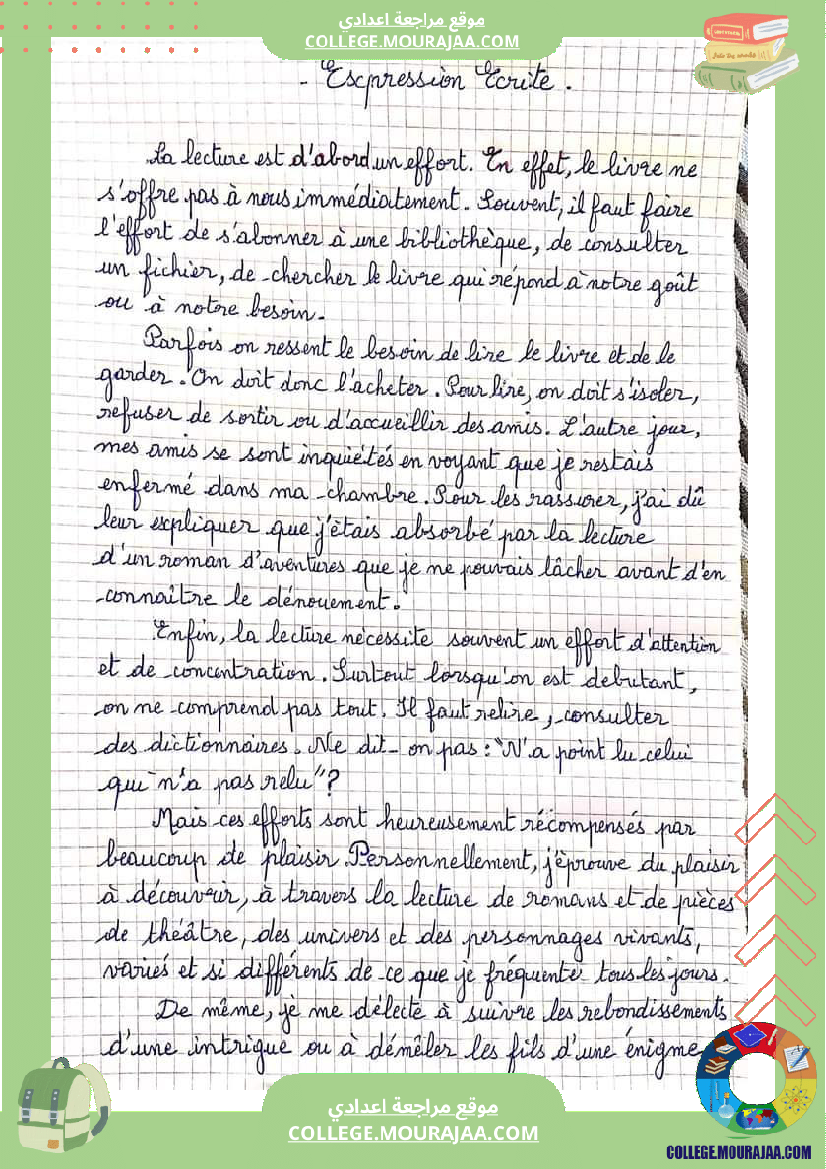 موقع مراجعة اعدادي
COLLEGE.MOURAJAA.COM
- Expression Ecrite.
La lecture est d'abord un effort. En effet, le livre ne
s'offre pas à nous immédiatement. Souvent, il faut faire
l'effort de s'abonner à une bibliothèque, de consulter
un fichier, de chercher le livre qui répond à notre goût
ou à notre besoin.
Parfois on ressent le besoin de lire le livre et de le
garder. On doit donc l'acheter. Pour lire, on doit s'isoler,
refuser de sortir ou d'accueillir des amis. L'autre jour,
mes amis se sont inquiétés en voyant que je restais
enfermé dans ma chambre. Pour les rassurer, j'ai dû
leur expliquer que j'étais absorbé par la lecture
d'un roman d'aventures que je ne pouvais lâcher avant d'en
connaître le dénouement.
Enfin, la lecture nécessite souvent un effort d'attention
et de concentration. Surtout lorsqu'on est debutant,
on ne comprend pas tout. Il faut relire, consulter
des dictionnaires. Ne dit-on pas : "N'a point lu celui
qui n'a pas relu"?
Mais ces efforts sont heureusement récompensés par
beaucoup de plaisir. Personnellement, j'éprouve du plaisir
à découvrir, à travers la lecture de romans et de pièces
de théâtre, des univers et des personnages vivants,
variés et si différents de ce que je fréquente tous les jours.
De même, je me délecte à suivre les rebondissements
d'une intrigue ou à démêler les fils d'une énigme
موقع مراجعة اعدادي
COLLEGE.MOURAJAA.COM
COLLEGE.MOURAJAA.COM